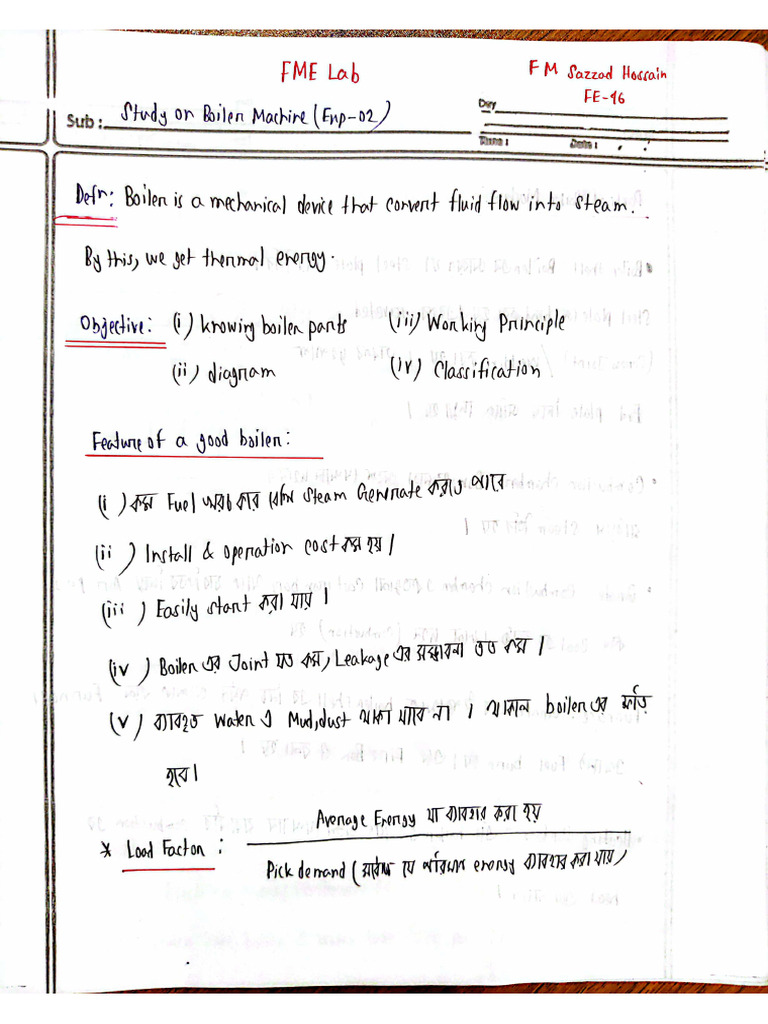 FME Lab
FM Sazzad Hossain
FE-46
Sub: Study on Boiler Machine (Exp-02)
Day
Time: Date:
Defn: Boiler is a mechanical device that convert fluid flow into steam.
By this, we get thermal energy.
Objective: (i) knowing boiler parts (iii) Working Principle
(ii) diagram (iv) Classification
Feature of a good boiler:
(i) কম Fuel খরচ করে বেশি Steam Generate করতে পারে
(ii) Install & operation cost কম হয়।
(iii) Easily start করা যায়।
(iv) Boiler এর Joint যত কম, Leakage এর সম্ভাবনা তত কম।
(v) ব্যবহৃত Water এ Mud, dust থাকা যাবে না। থাকলে boiler এর ক্ষতি
হবে।
* Load Factor: Average Energy যা ব্যবহার করা হয়
Pick demand (সর্বোচ্চ যে পরিমাণ energy ব্যবহার করা যায়)